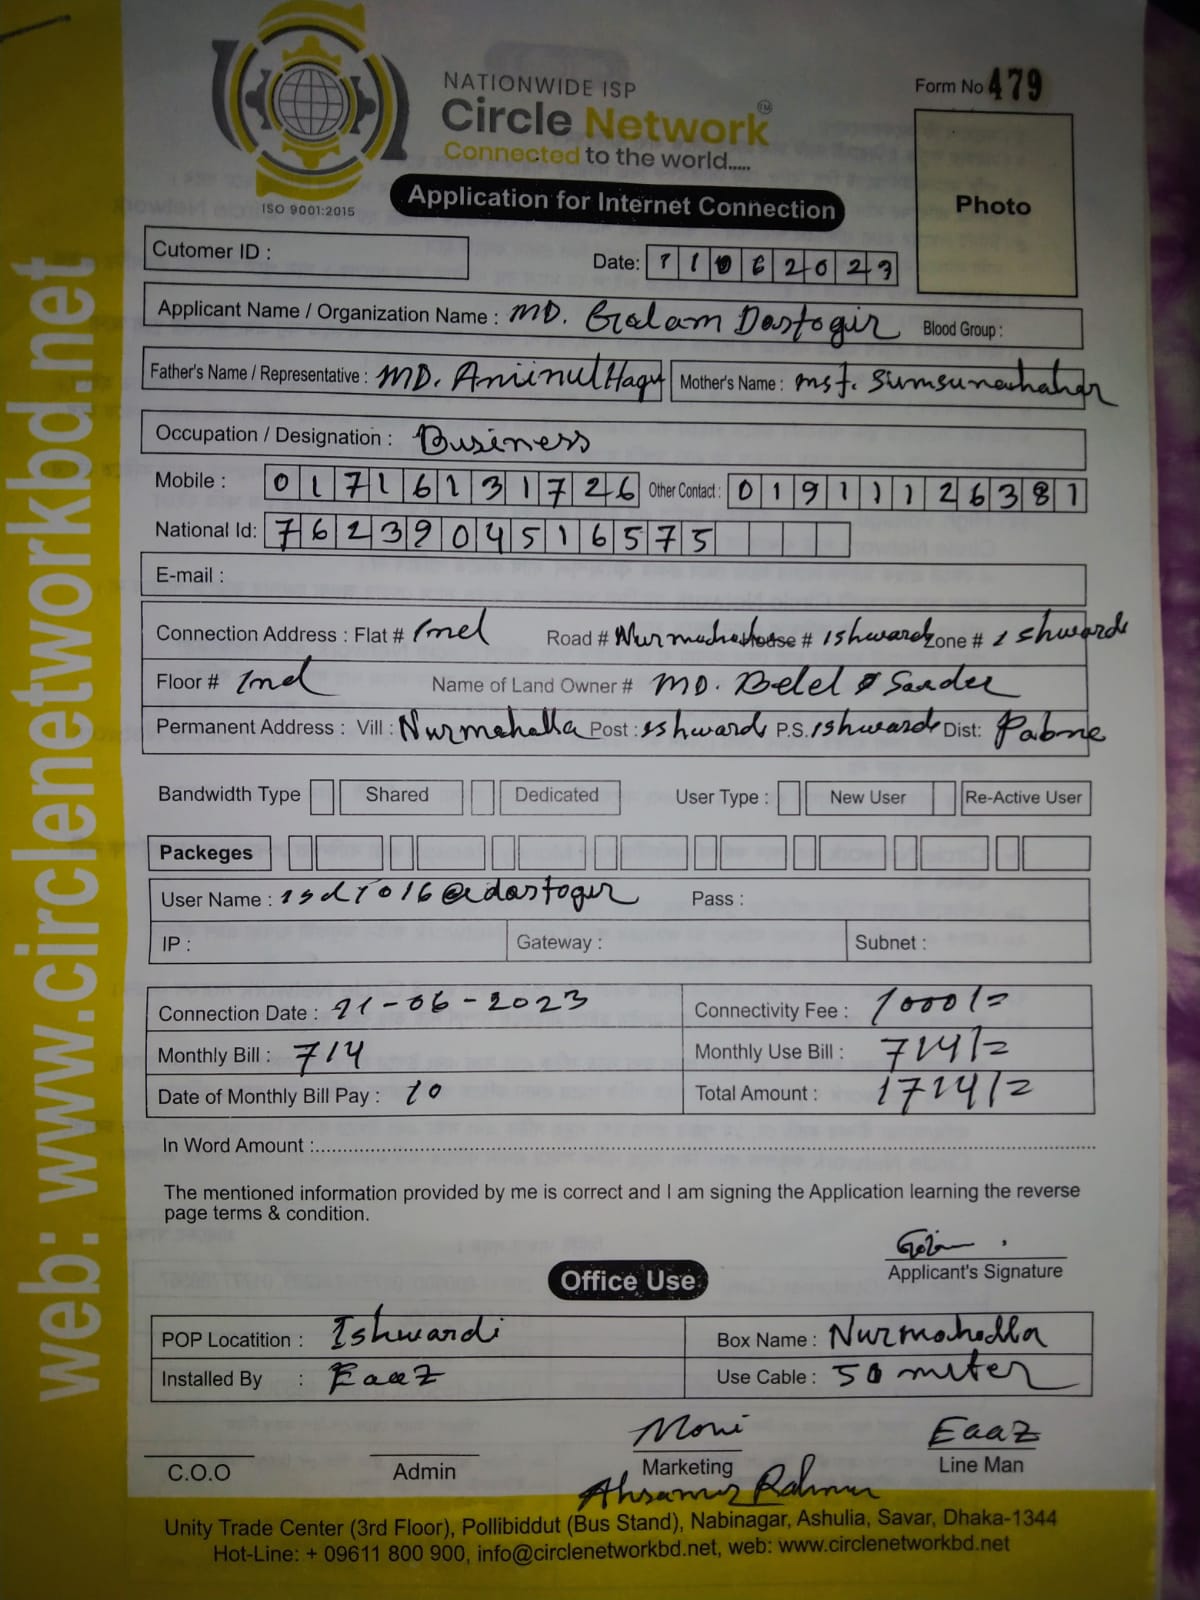 NATIONWIDE ISP
Circle Network TM
Connected to the world.....
ISO 9001:2015
Form No 479
Photo
Application for Internet Connection
Cutomer ID :
Date: 2023
Applicant Name / Organization Name : MD. Golam Dastogir Blood Group :
Father's Name / Representative : MD. Aminul Haqu Mother's Name : Mst.
Occupation / Designation : Business
Mobile : 01716131726 Other Contact : 01911126381
National Id: 7623904516575
E-mail :
Connection Address : Flat # Road # Nurmaha House # Ishwardi Zone # Ishwardi
Floor # Name of Land Owner # MD. Belel Sarder
Permanent Address : Vill : Nurmahalla Post : Ishwardi P.S. Ishwardi Dist: Pabna
Bandwidth Type Shared Dedicated User Type : New User Re-Active User
Packeges
User Name : isd1016@dastogir Pass :
IP : Gateway : Subnet :
Connection Date : 21-06-2023 Connectivity Fee : 1000/=
Monthly Bill : 714 Monthly Use Bill : 714/=
Date of Monthly Bill Pay : 10 Total Amount : 1714/=
In Word Amount :
The mentioned information provided by me is correct and I am signing the Application learning the reverse
page terms & condition.
Applicant's Signature
Office Use
POP Locatition : Ishwardi Box Name : Nurmoholla
Installed By : Eaaz Use Cable : 50 miter
Moni Eaaz
C.O.O Admin Marketing Line Man
Rahman
Unity Trade Center (3rd Floor), Pollibiddut (Bus Stand), Nabinagar, Ashulia, Savar, Dhaka-1344
Hot-Line: + 09611 800 900, info@circlenetworkbd.net, web: www.circlenetworkbd.net
web: www.circlenetworkbd.net